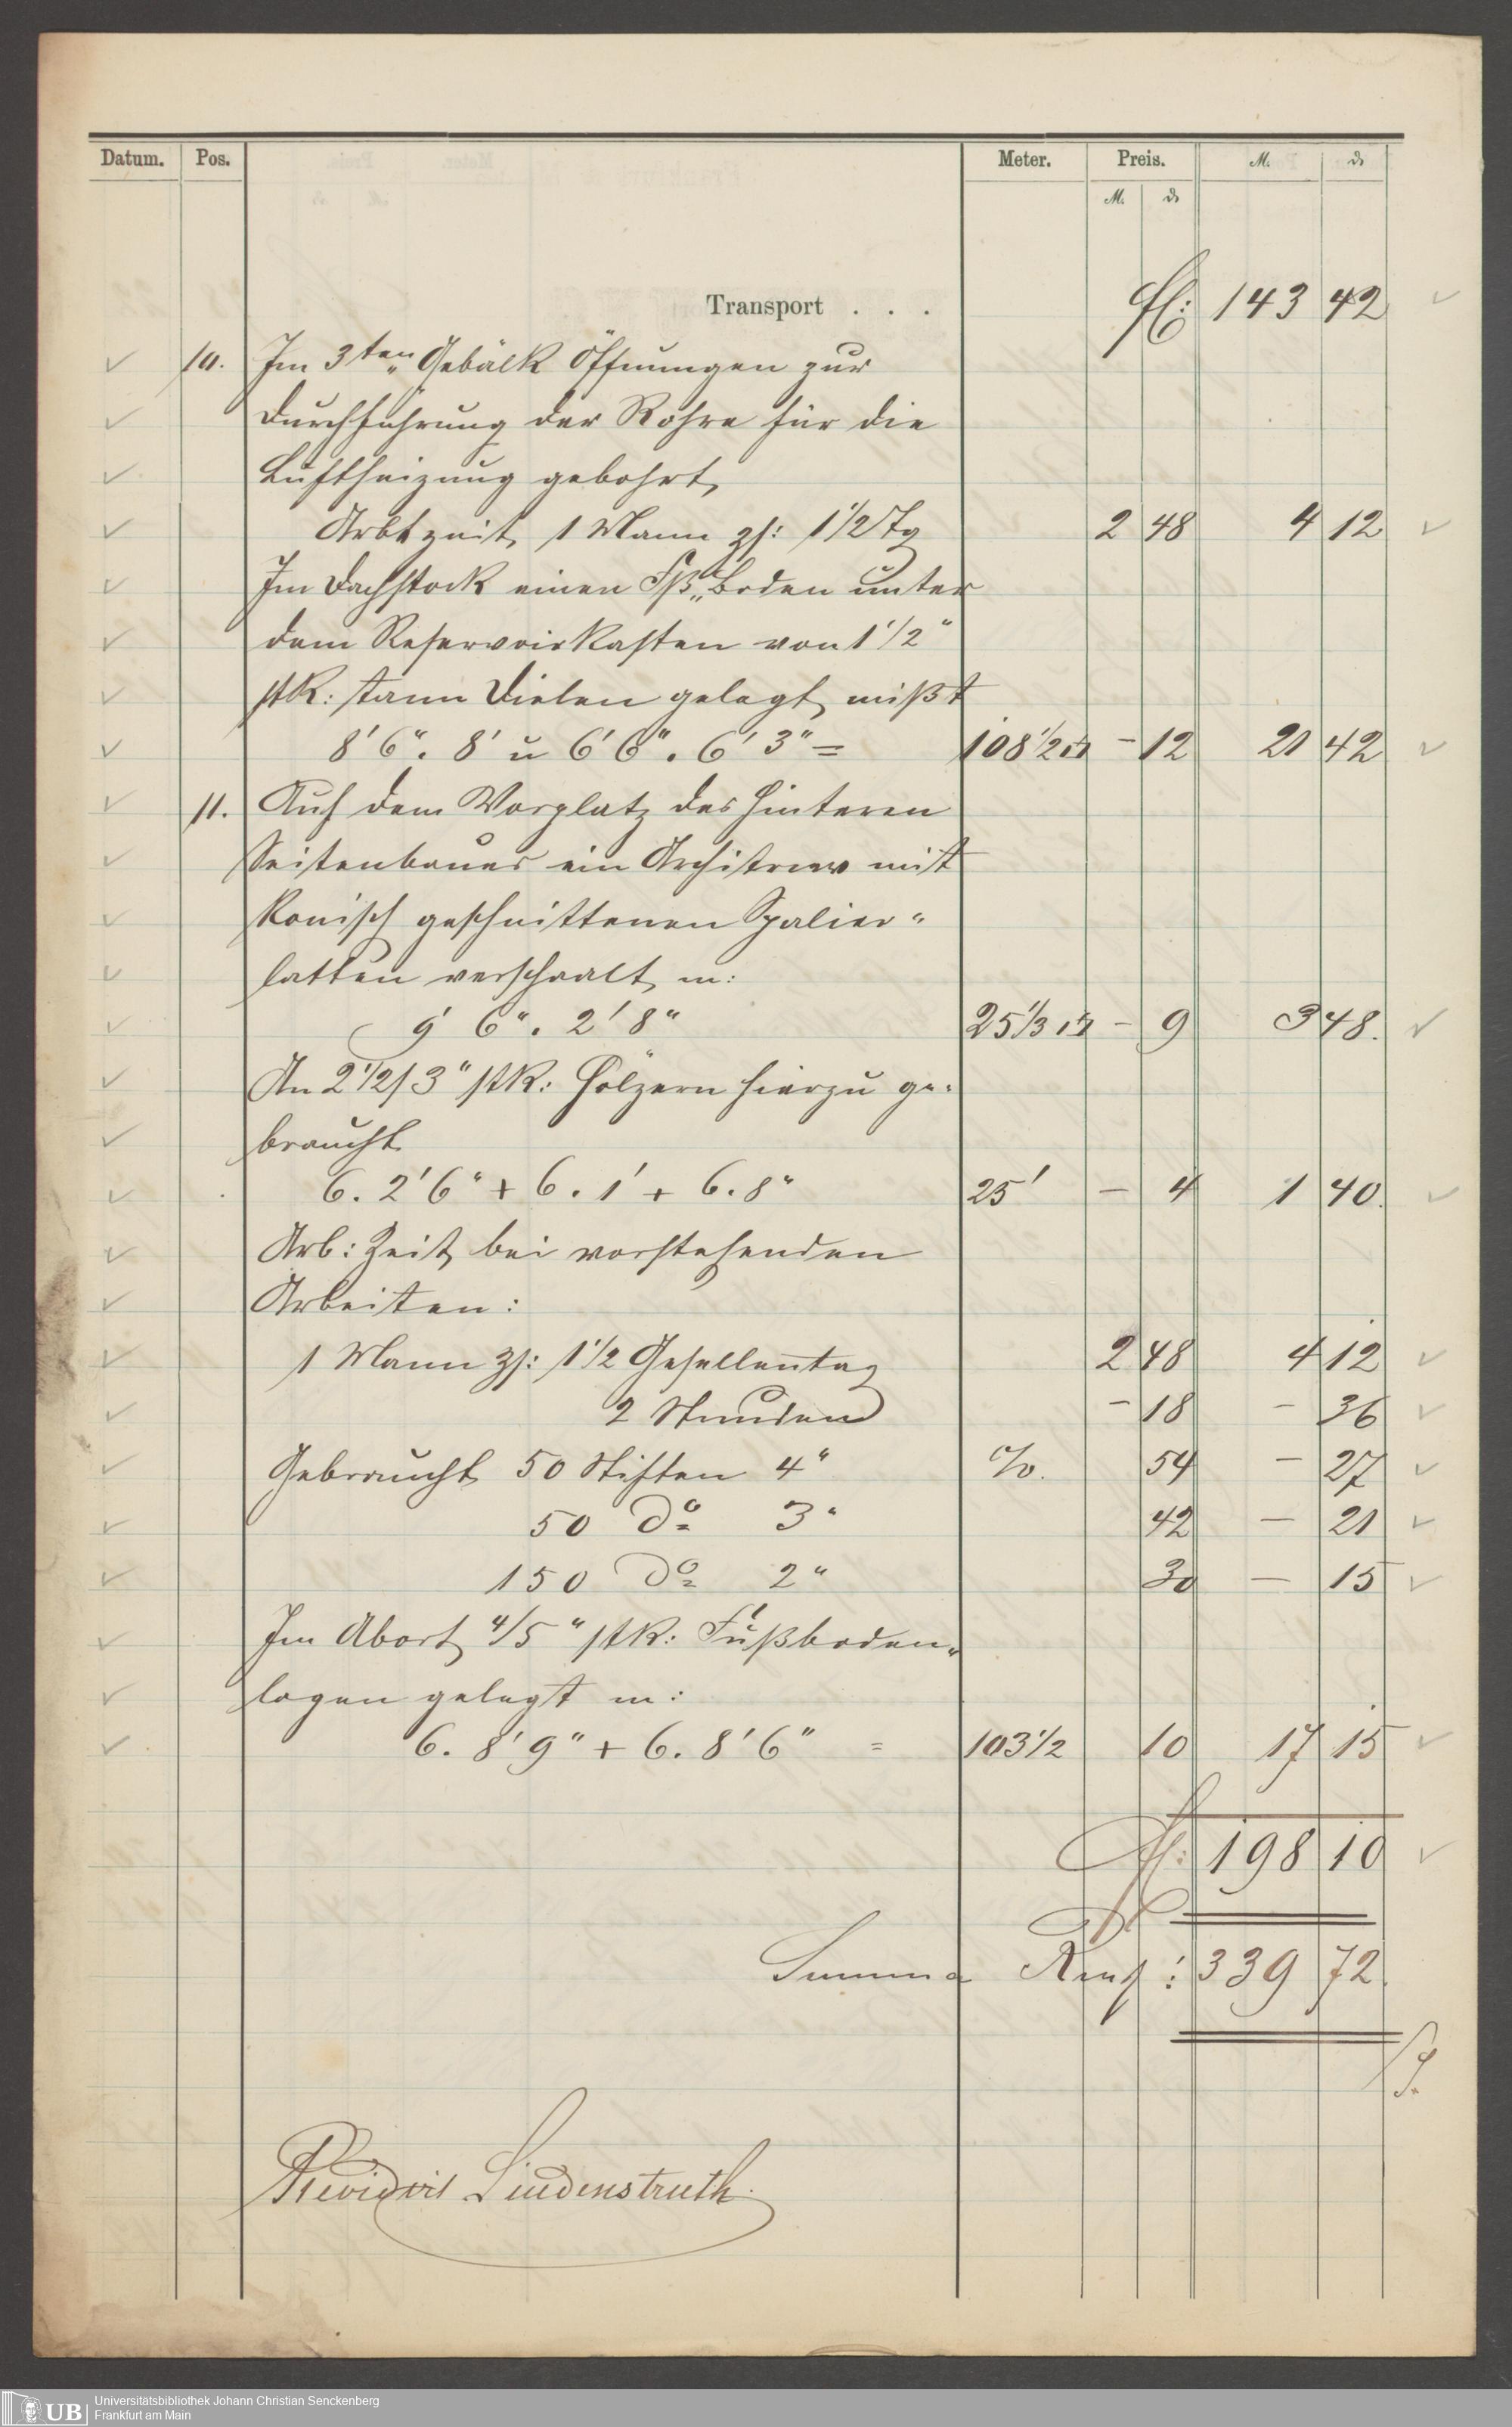 Datum. Pos. Meter. Preis. M. ₰
M. ₰
Transport . . . fl: 143 42
10. Im 3ten Gebälk Öffnungen zur
Durchführung der Rohre für die
Luftheizung gebohrt,
Arbtzeit, 1 Mann zs: 1 1/2 Tg 2 48 4 12
Im Dachstock einen Fß„Boden unter
dem Reservoirkasten von 1 1/2"
stk: tann Dielen gelegt, mißt
8' 6". 8' u 6' 6". 6' 3" = 108 1/2 □' – 12 21 42
11. Auf dem Vorplatz des hinteren
Seitenbaues ein Architrav mit
konisch geschnittenen Spalier„
latten verschaalt, m:
9' 6". 2' 8" 25 1/3 □' – 9 3 48.
An 2 1/2/3" stk: Hölzern hierzu ge„
braucht
6. 2' 6" + 6. 1' + 6. 8" 25' – 4 1 40.
Arb: Zeit, bei vorstehenden
Arbeiten:
1 Mann zs: 1 1/2 Gesellentag 2 48 4 12
2 Stunden – 18 – 36
Gebraucht 50 Stiften 4" %. 54 – 27
50 do 3" 42 – 21
150 do 2" 30 – 15
Im Abort, 4/5" stk: Fußboden„
lagen gelegt m:
6. 8' 9" + 6. 8' 6" = 103 1/2 10 17 15
fl: 198 10
Summa Rmk: 339 72.
Revidirt Lindenstruth.
UB
Universitätsbibliothek Johann Christian Senckenberg
Frankfurt am Main